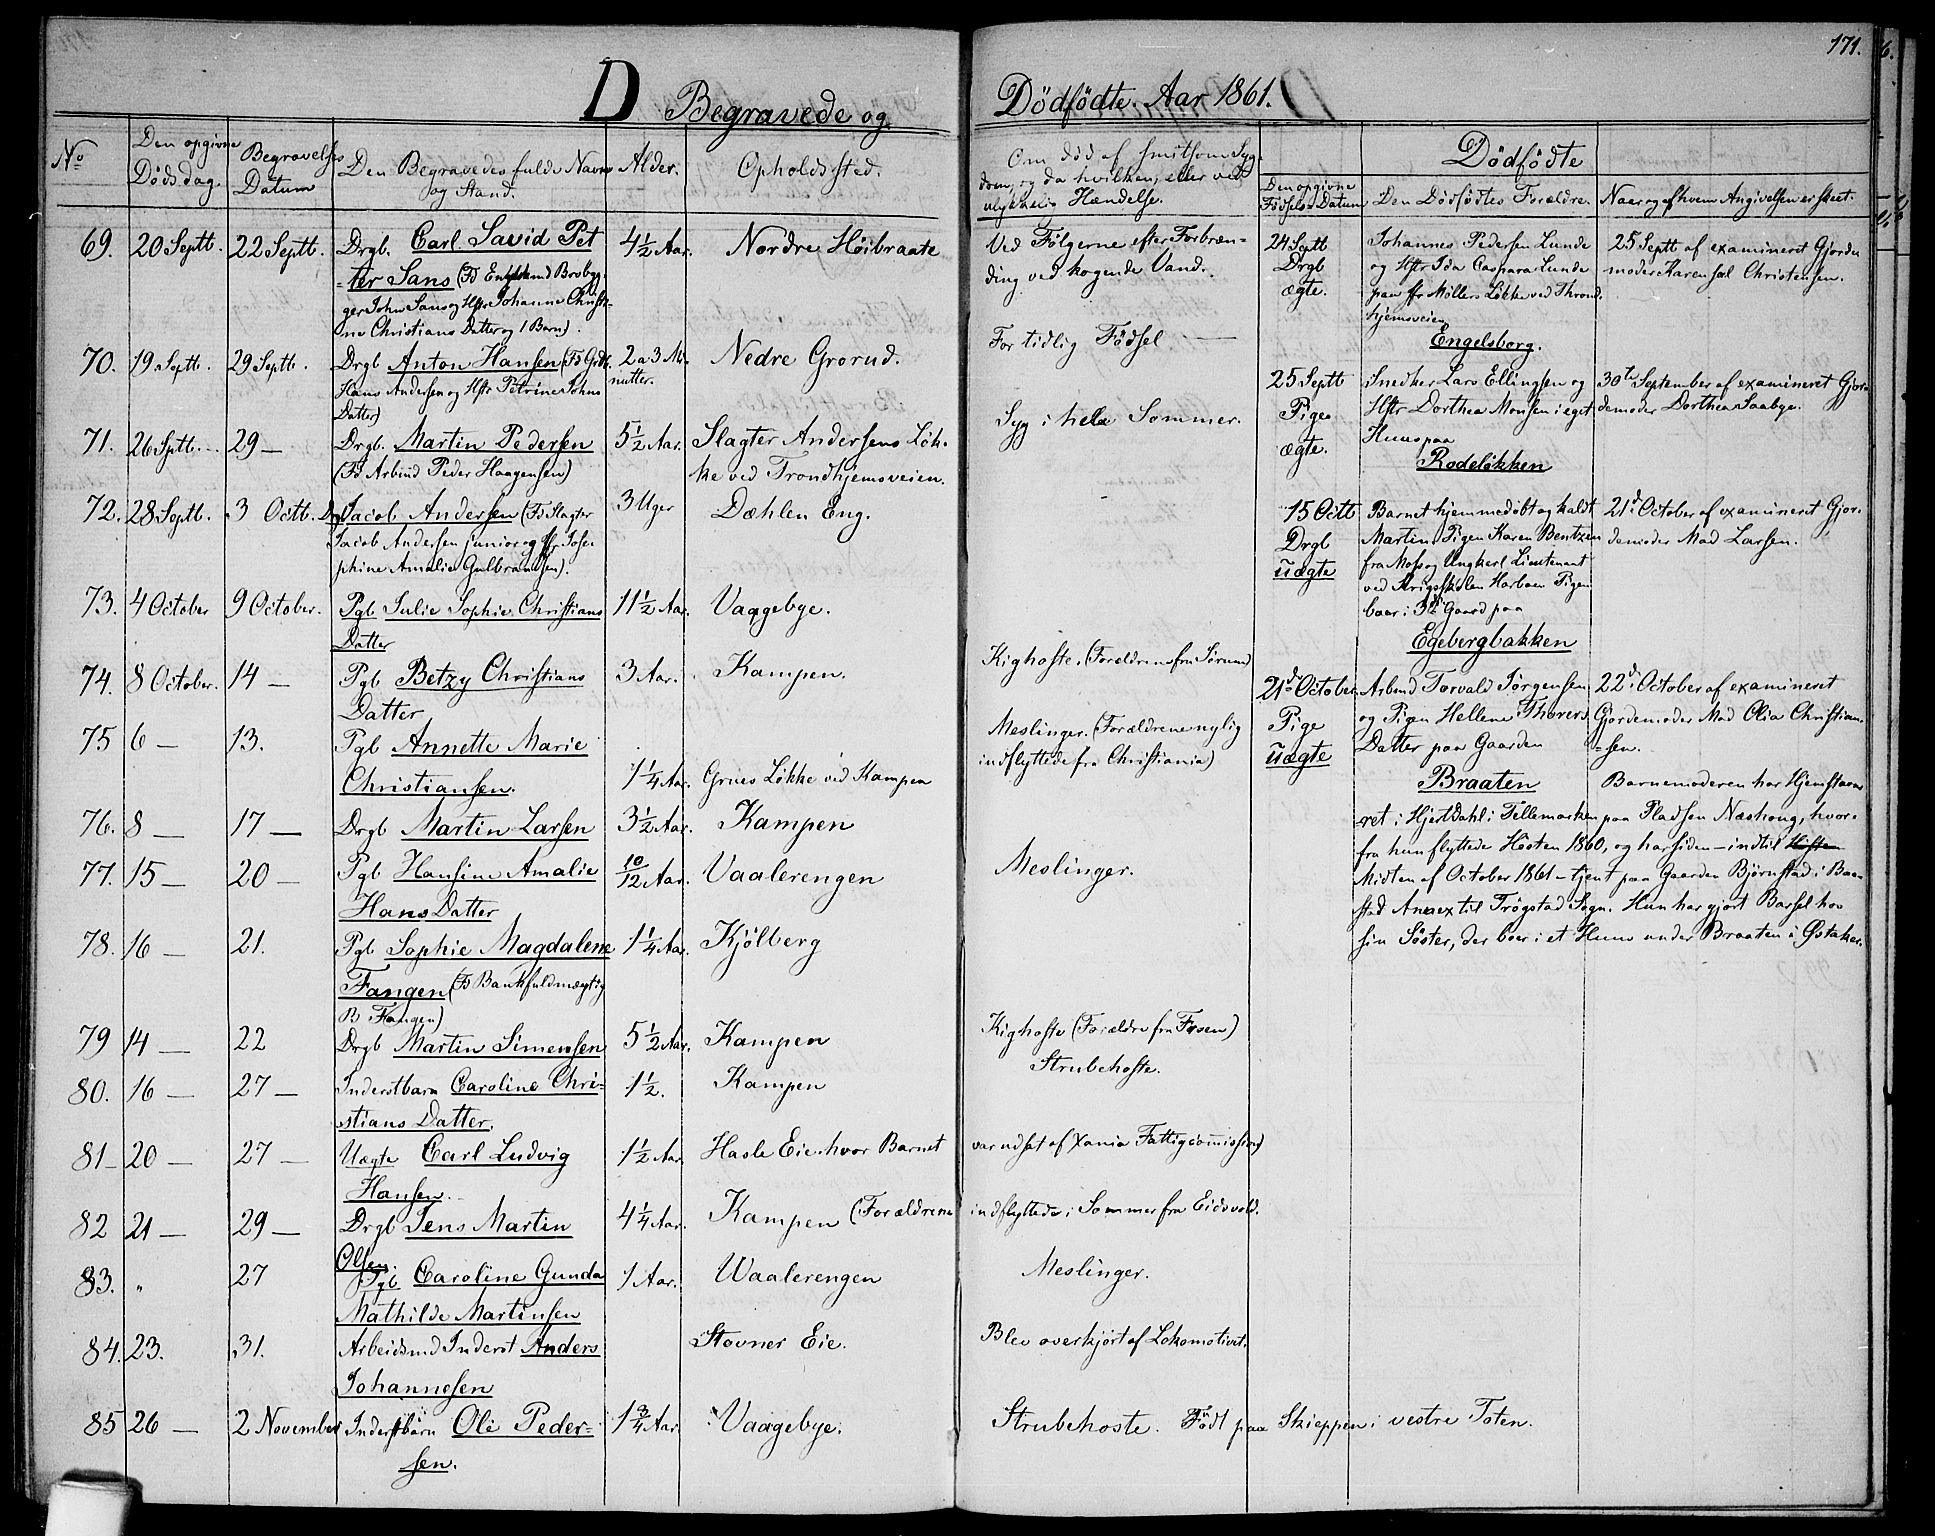 171.
D Begravede og Dödfödte. Aar 1861.
No
Den opgivne Dödsdag.
Begravelses Datum
Den Begravedes fulde Navn og Stand.
Alder.
Opholdssted.
Om död af smitsom Syg-
dom, og da hvilken, eller ved
ulykkelig Hændelse.
Dödfödte
Den opgivne Födsels-Datum
Den Dödfödtes Forældre.
Naar og af hvem Angivelsen er skeet.
69. 20 Septb. 22 Septb. Drgb. Carl David Pet 4½ Aar. Nordre Höibraate Ved Fölgerne efter Forbræn-
-ter Sans (Fd Englænd Brobyg- ding ved kogende Vand.
ger John Sans og Hstr Johanne Christi-
ne Christians Datter og 1 Barn).
70. 19 Septb. 29 Septb. Drgb Anton Hansen (Fd Gdb. 2 a 3 Mi- Nedre Grorud. For tidlig Födsel
Hans Andersen og Hstr Petrine Johns nutter.
Datter)
71. 26 Sptb. 29 — Drgb. Martin Pedersen 5½ Aar. Slagter Andersens Løk- Syg i hele Sommer.
(Fd Arbmd Peder Haagensen) ke ved Trondhjemsveien.
72. 28 Septb. 3 Octb. Drgb Jacob Andersen (Fd Slagter 3 Uger Dæhlen Eng.
Jacob Andersen junior og Hstr Jose-
phine Amalie Gulbransen).
73. 4 October 9 October. Pgb. Julie Sophie Christians 11½ Aar. Vaggebye.
Datter
74. 8 October. 14 — Pgb Betzy Christians 3 Aar. Kampen. Kighoste. (Forældrene fra Sørum)
Datter
75 6 — 13. Pgb Annette Marie Meslinger. (Forældrene nylig
Christiansen. 1¼ Aar. Grües Løkke ved Kampen indflyttede fra Christiania)
76. 8 — 17 — Drgb Martin Larsen 3½ Aar. Kampen
77. 15 — 20 — Pgb Hansine Amalie 10/12 Aar. Vaalerengen Meslinger.
Hans Datter
78. 16 — 21. Pgb Sophie Magdalene 1¼ Aar. Kjölberg
Fangen (Fd Bankfuldmægtig
B Fangen)
79 14 — 22 Drgb Martin Simensen 5½ Aar. Kampen Kighoste (Forældre fra Fosen)
80. 16 — 27 — Inderstbarn Caroline Chri- 1½. Kampen Strubehoste.
stians Datter.
81 — 20 — 27 — Uægte Carl Ludvig 1½ Aar. Hasle Eie hvor Barnet var udsat af Xania Fattigcommission)
Hansen.
82 21 — 29 — Drgb Jens Martin 4¼ Aar. Kampen (Forældrene indflyttede i Sommer fra Eidsvold.
Olsen
83. " 27 Pgb Caroline Gunda 1 Aar. Waalerengen Meslinger.
Mathilde Martinsen
84. 23. 31. Arbeidsmd Inderst Anders Stovner Eie. Blev overkjört af Lokomotivet.
Johannesen
85 26 — 2 November Inderstbarn Ole Peder- 1¾ Aar. Vaagebye. Strubehoste. Født paa Skieppen i vestre Toten.
sen.
24 Septb Drgb ægte.
Johannes Pedersen Lunde
og Hstr Ida Caspara Lunde
paa Fr Møllers Løkke ved Thrond
hjemsveien
Engelsborg.
25 Septb af examineret Gjorde
moder Karen sal Christensen.
25 Septb Pige ægte.
Snedker Lars Ellingsen og
Hstr Dorthea Monsen i eget
Huus paa
Rodeløkken
30te September af examineret Gjor-
demoder Dorthea Saabye.
15 Octb Drgb uægte
Barnet hjemmedøbt og kaldt
Martin. Pigen Karen Bentzen
fra Moss og Ungkarl Lieutenant
ved Krigsskolen Harboe. Pigen
boer i 3die Gaard paa
Egebergbakken
21d October af examineret Gjor-
demoder Mad Larsen.
21d October Pige uægte
Arbmd Torvald Jørgensen
og Pigen Hellene Thovers
Datter paa Gaarden
Braaten
22d October af examineret
Gjordemoder Mad Olia Christian-
-sen.
Barnemoderen har Hjemstavn-
ret i Hjertdahl i Tellemarken paa Pladsen Næshoug, hvor-
fra hun flyttede Hösten 1860, og har siden — indtil
Midten af October 1861 — tjent paa Gaarden Björnstad i Baa-
stad Annex til Trögstad Sogn. Hun har gjort Barsel hos
sin Söster, der boer i et Huus under Braaten i Østaker.